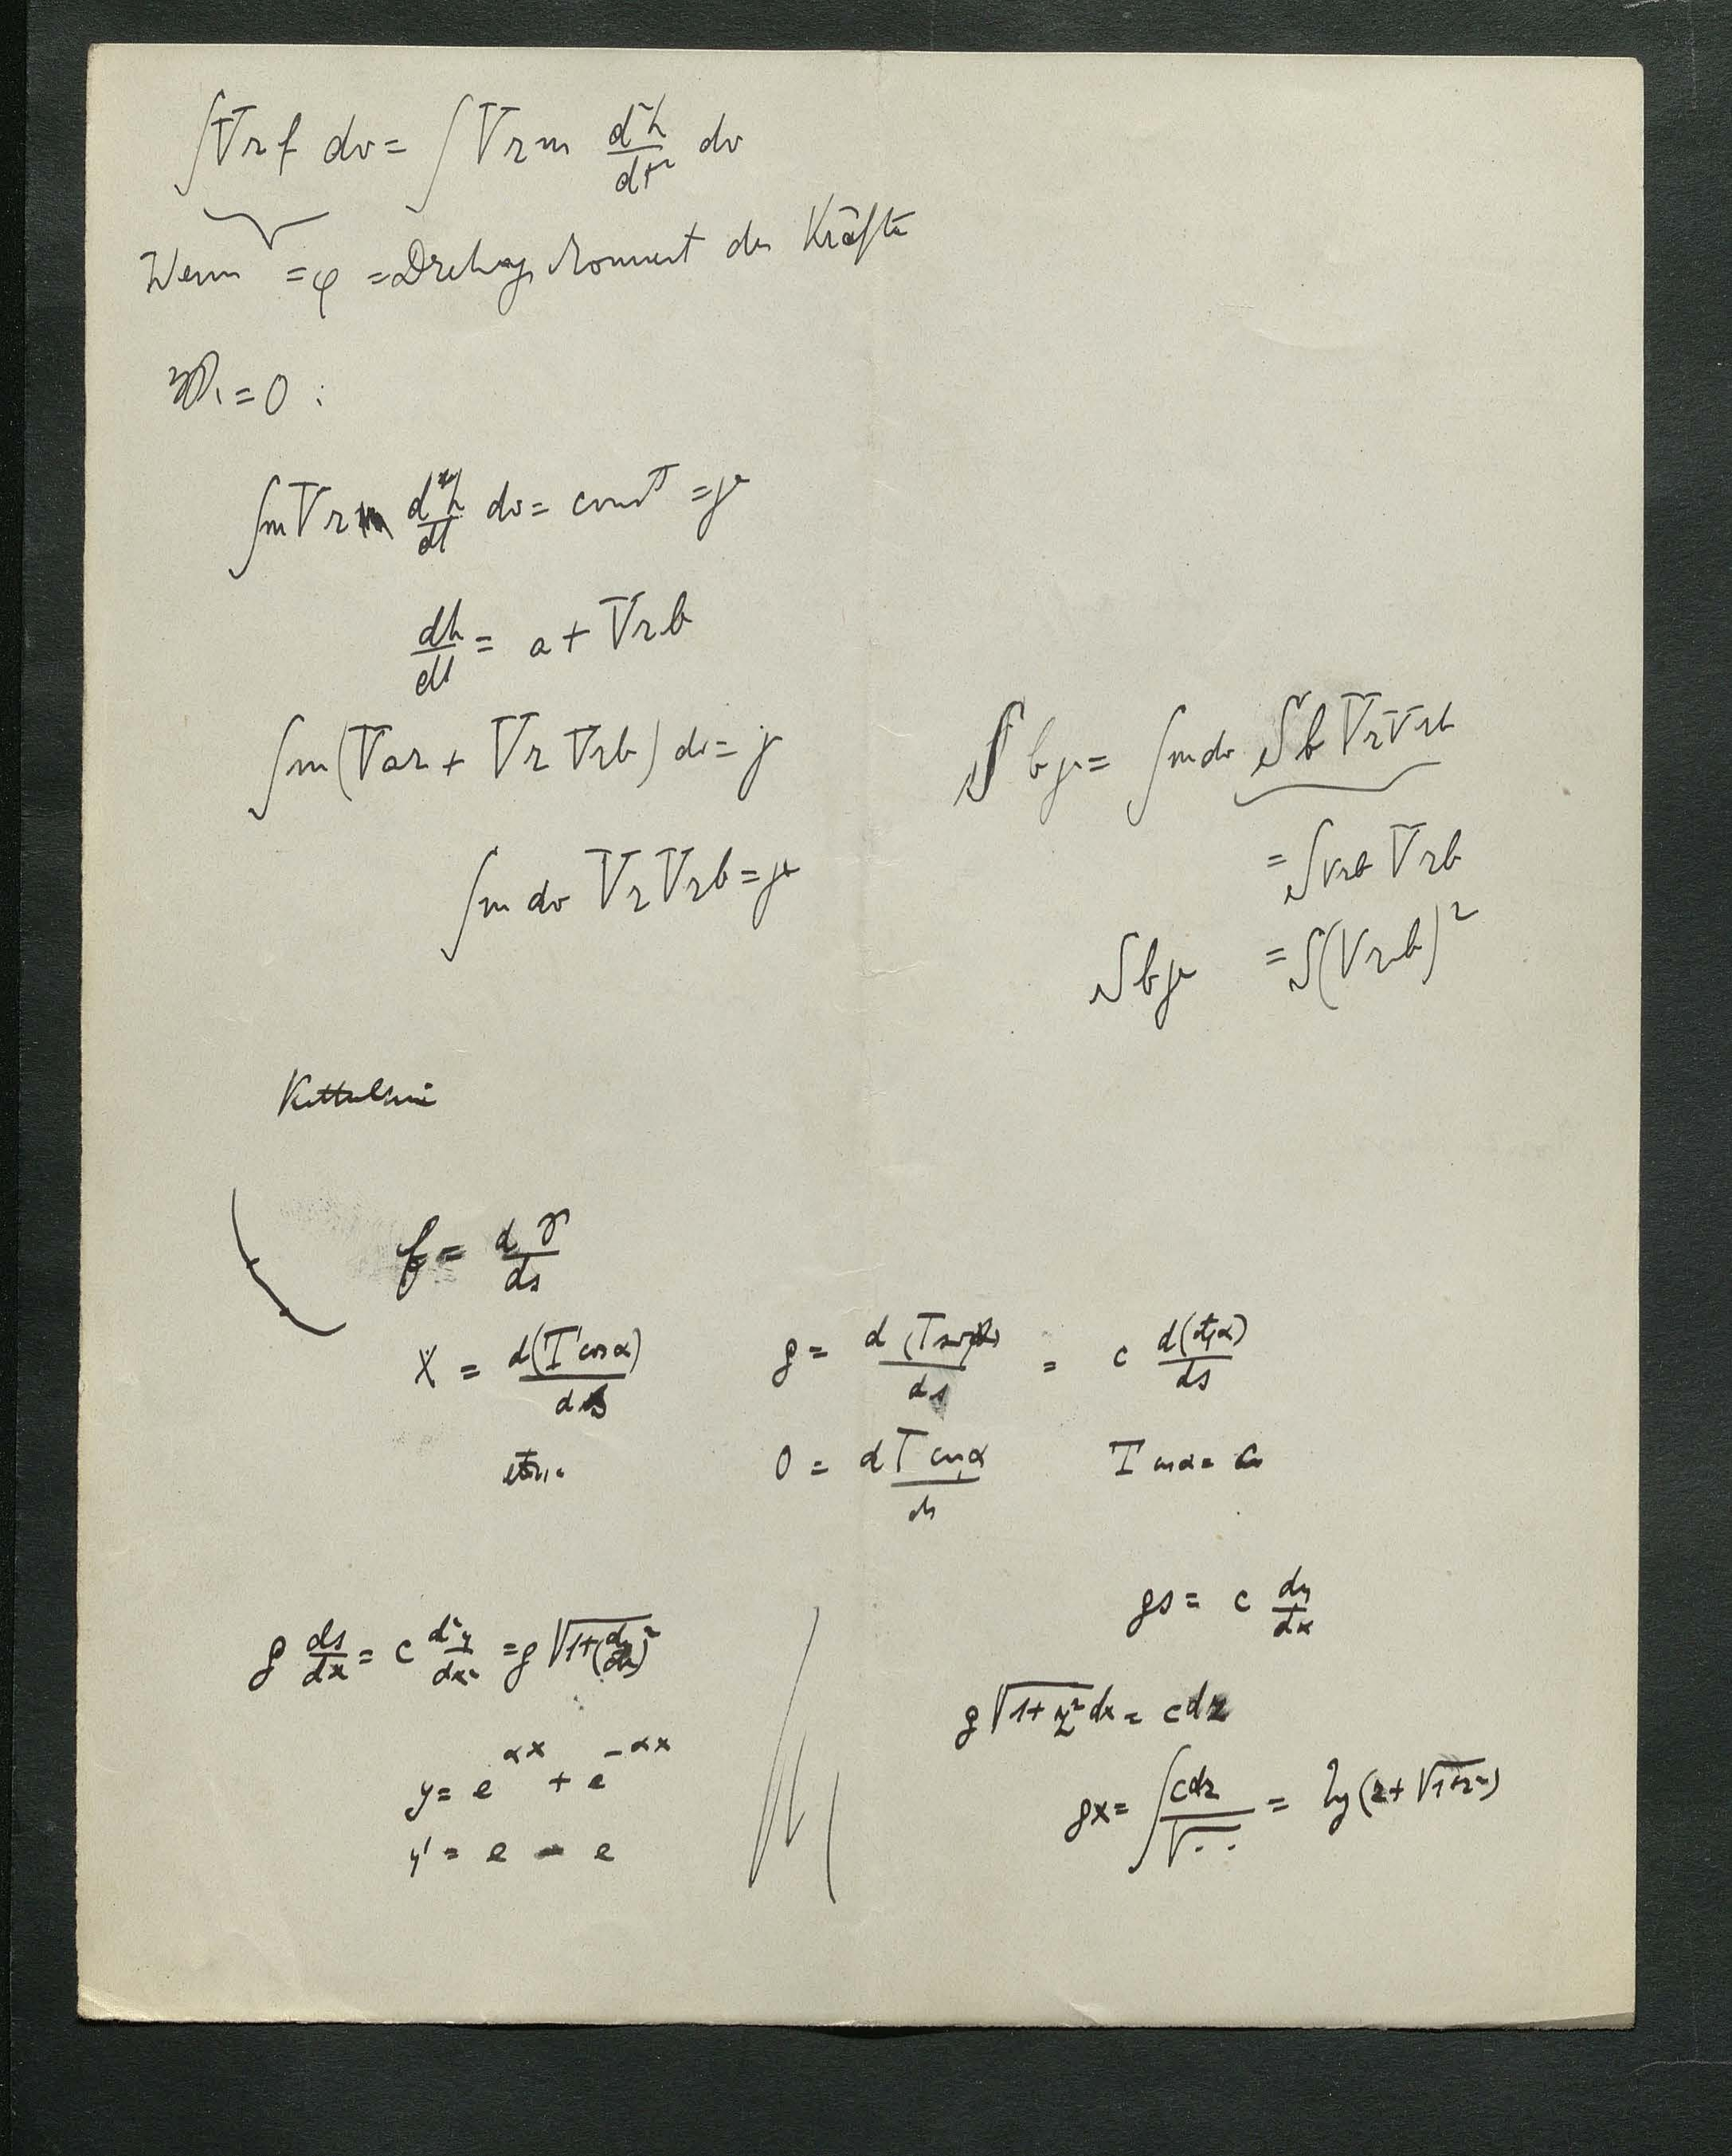 ∫Vrf dv = ∫Vrm d²r/dt² dv
Wenn = φ = Drehungsmoment der Kräfte
= 0 :
∫mVr dr/dt dv = const = μ
dr/dt = a + Vrb
∫m(Var + VrVrb) dv = μ
∫m dv VrVrb = μ
Sbμ = ∫mdv SbVrVrb
= SVrb Vrb
Sbμ = S(Vrb)²
Kettenlinie
f = dγ/ds
X = d(T cos α)/ds
g = d(T sin α)/ds = c d(tg α)/ds
etc.
0 = dT cos α/ds
T cos α = c
gs = c dy/dx
g ds/dx = c d²y/dx² = g √1+(dy/dx)²
g √1+z² dx = cdz
y = e^αx + e^−αx
gx = ∫cdz/√.. = lg(z + √1+z²)
y' = e − e